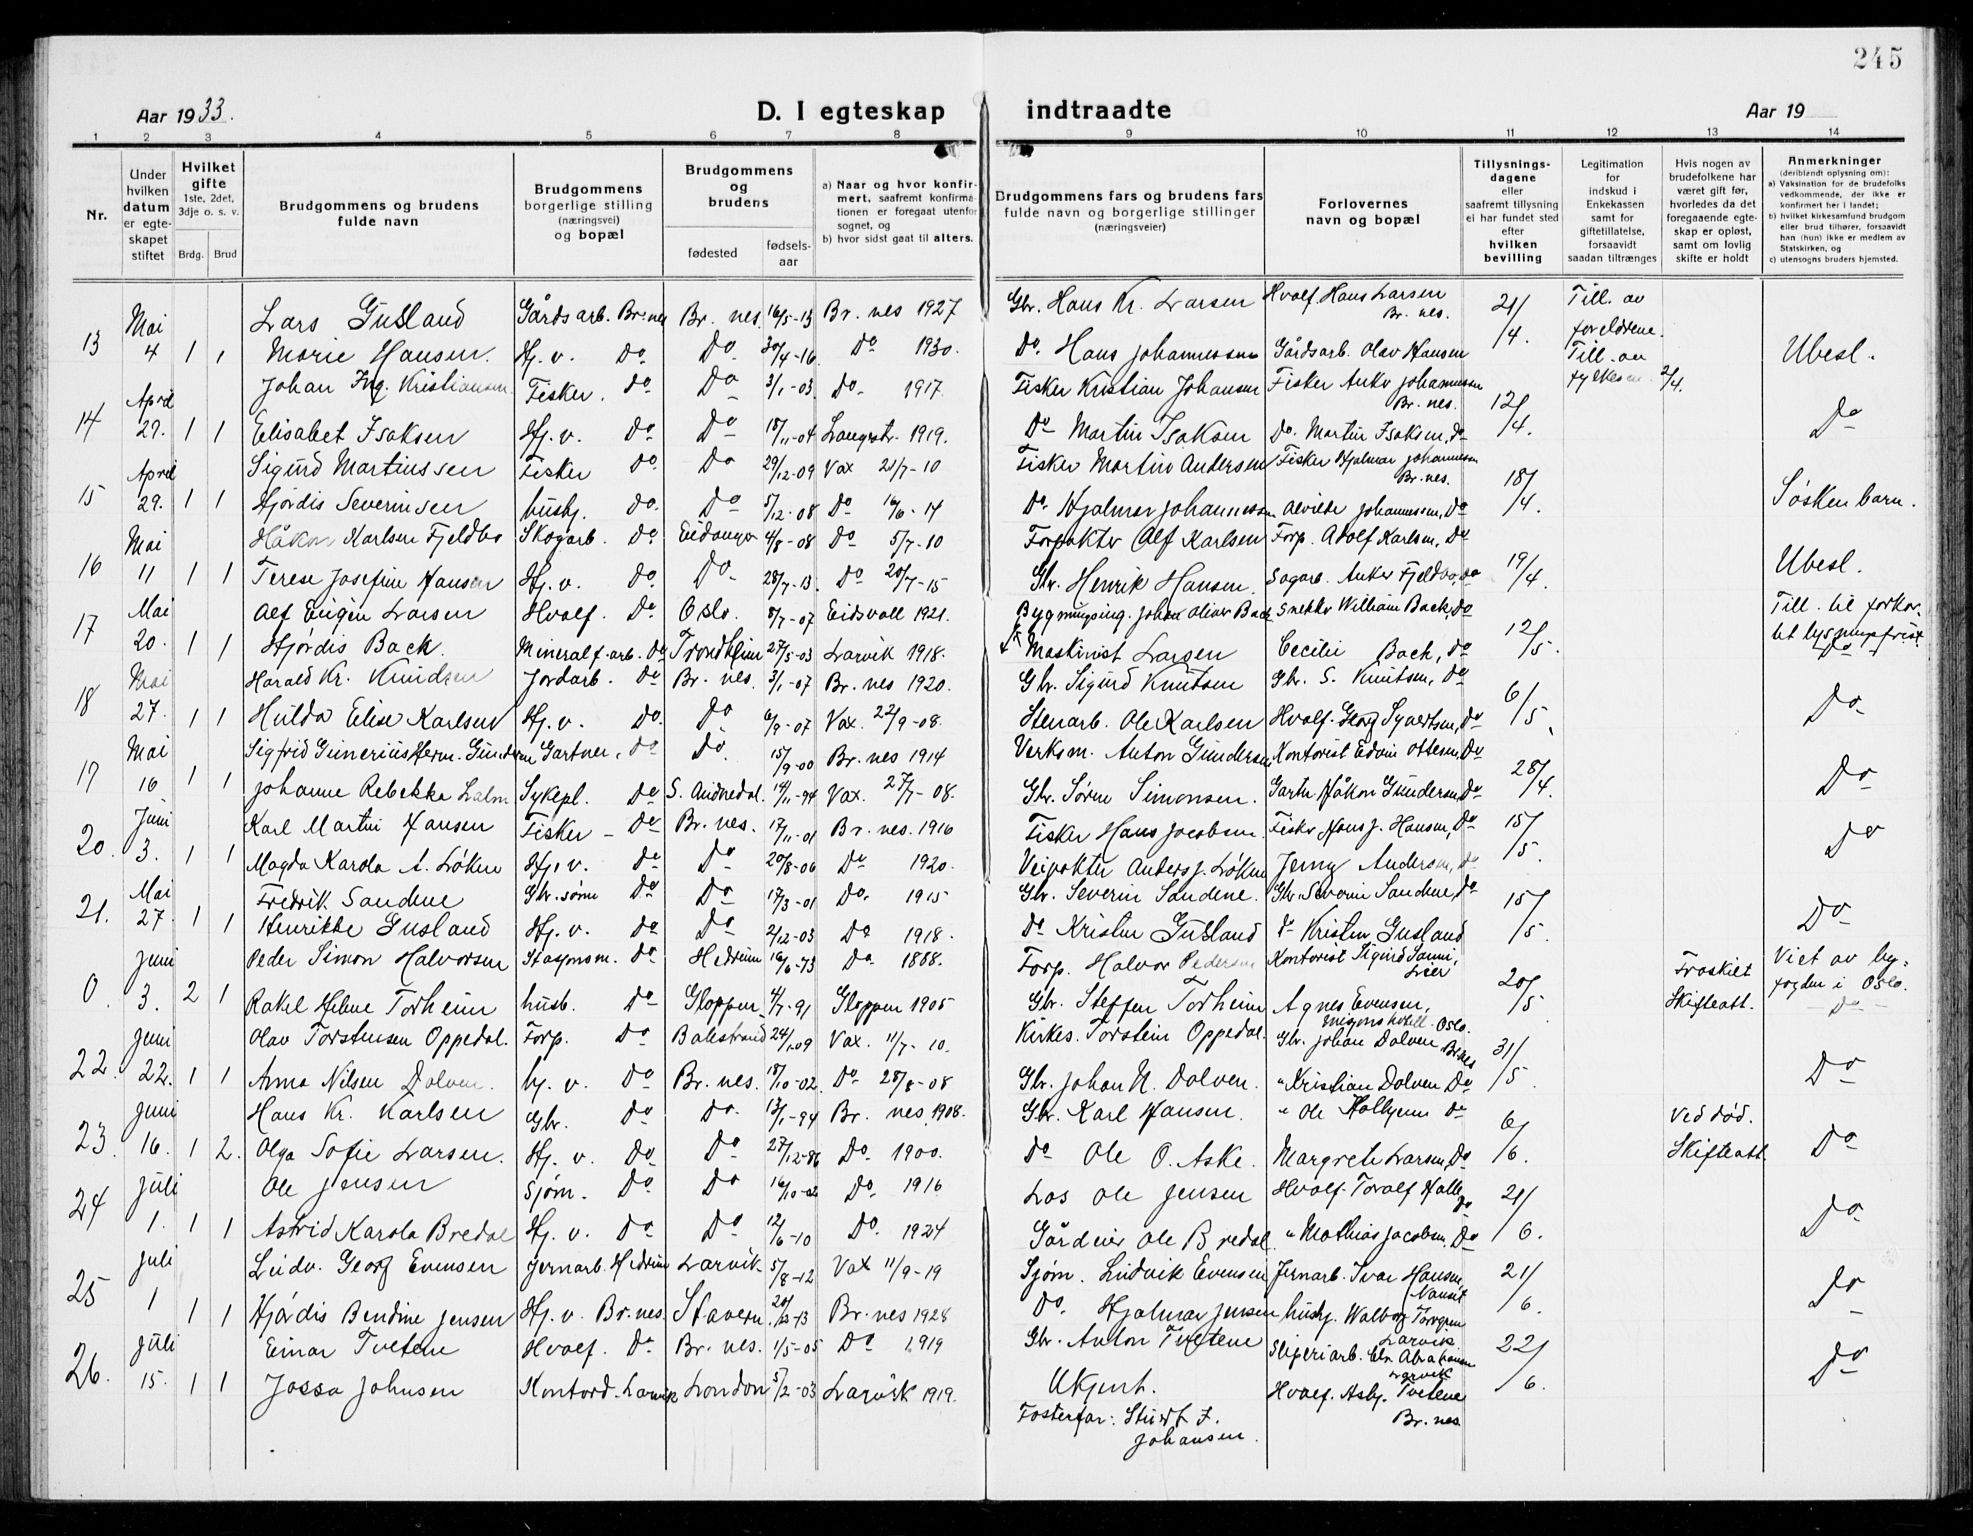 245
Aar 1933.
D. I egteskap indtraadte
Aar 19
1 2 3 4 5 6 7 8 9 10 11 12 13 14
Nr.
Under hvilken datum er egteskapet stiftet
Hvilket gifte 1ste, 2det, 3dje o. s. v.
Brdg. Brud
Brudgommens og brudens fulde navn
Brudgommens borgerlige stilling (næringsvei) og bopæl
Brudgommens og brudens
fødested
fødsels-aar
a) Naar og hvor konfirmert, saafremt konfirmationen er foregaat utenfor sognet, og
b) hvor sidst gaat til alters.
Brudgommens fars og brudens fars fulde navn og borgerlige stillinger (næringsveier)
Forlovernes navn og bopæl
Tillysningsdagene eller saafremt tillysning ei har fundet sted efter hvilken bevilling
Legitimation for indskud i Enkekassen samt for giftetillatelse, forsaavidt saadan tiltrænges
Hvis nogen av brudefolkene har været gift før, hvorledes da det foregaaende egteskap er opløst, samt om lovlig skifte er holdt
Anmerkninger (deriblandt oplysning om):
a) Vaksination for de brudefolks vedkommende, der ikke er konfirmert her i landet;
b) hvilket kirkesamfund brudgom eller brud tilhører, forsaavidt han (hun) ikke er medlem av Statskirken, og
c) utensogns bruders hjemsted.
13 Mai 4 1 1 Lars Gusland Gårdsarb. Br.nes Br. nes. 16/5-13 Br. nes 1927 Gbr. Hans Kr. Larsen Hvalf. Hans Larsen Br. nes. 21/4. Till. av foreldrene.
Marie Hansen. Hj. v. Do Do 30/4-16 Do 1930. Do. Hans Johannessen Gårdsarb. Olav Hansen Till. av fylkesm. 2/4. Ubesl.
14 April 29. 1 1 Johan Ing. Kristiansen Fisker. Do Do 3/1-03 Do 1917. Fisker Kristian Johansen Fisker Anker Johannessen Br. nes. 12/4.
Elisabet Isaksen Hj. v. Do Do 18/11-04 Langestr. 1919. Do Martin Isaksen Do. Martin Isaksen, Do Do
15 April 29. 1 1 Sigurd Martinssen Fisker Do Do 29/12-09 Vax 21/7-10 Fisker Martin Andersen Fisker Hjalmar Johannessen Br. nes. 18/4.
Hjørdis Severinsen hushj. Do. Do 5/12-08 Do 16/6-14 Do. Hjalmar Johannessen Alvilde Johannessen, Do Søskenbarn.
16 Mai 11 1 1 Håkon Karlsen Fjeldbo Skogarb. Do Eidanger 4/8-08 Do 5/7-10 Forpakter Alf Karlsen Forp. Adolf Karlsen, Do 19/4.
Terese Josefine Hansen Hj. v. Do. Do 28/7-13. Do 20/7-15 Gbr. Henrik Hansen. Sagarb. Anker Fjeldbo, Do Ubesl.
17 Mai 20. 1 1 Alf Eugen Larsen Hvalf. Do Oslo. 8/7-07 Eidsvoll 1921. Bygningsing. Johan Oliver Back Snekker William Back, Do 12/5. Till. til forkortet lysningsfrist
Hjørdis Back. Mineralf.arb. Do Trondheim 27/5-03 Larvik 1918. Maskinist Larsen Cecilie Back, Do Do
18 Mai 27. 1 1 Harald Kr. Knudsen Jordarb. Do Br. nes. 3/1-07 Br. nes 1920. Gbr. Sigurd Knutsen Gbr. S. Knutsen, Do 6/5
Hulda Elise Karlsen Hj. v. Do. Do 6/9-07 Vax. 22/9-08. Stenarb. Ole Karlsen Hvalf. Georg Syvertsen, Do Do
19 Mai 16 1 1 Sigfrid Gunerius Herm. Gundersen Gartner, Do Do. 15/9-00 Br. nes 1914 Verksm. Anton Gundersen Kontorist Edvin Ottesen, Do 28/4.
Johanne Rebekka Salm Sykepl. Do S. Audnedal. 14/11-94 Vax. 27/7-08. Gbr. Søren Simonsen. Gartn Håkon Gundersen, Do Do
20. Juni 3. 1 1 Karl Martin Hansen Fisker Do Br. nes. 17/11-01 Br. nes. 1916 Fisker Hans Jacobsen Fisker Hans J. Hansen, Do 15/5.
Magda Karola A. Løken Hj. v. Do Do 20/8-06 Do 1920. Veivokter Anders J. Løken Jenny Andersen, Do Do
21. Mai 27. 1 1 Fredrik Sandene Gbr. sønn Do Do 17/3-01 Do. 1915 Gbr. Severin Sandene. Gbr. Severin Sandene, Do 15/5.
Henrikke Gusland Hj. v. Do Do 2/12-03 Do 1918. Do Kristen Gusland Do Kristen Gusland Do
0 Juni 3. 2 1 Peder Simon Halvorsen Stasjonsm. Do Hedrum 16/6-73 Do 1888. Forp. Halvor Pedersen Kontorist Sigurd Lier 20/5 Fraskilt Viet av byfogden i Oslo.
Rakel Helene Torheim husb. Do Gloppen 4/7-91 Gloppen 1905 Gbr. Steffen Torheim Agnes Evensen, Misjonshotell. Oslo. Skifteatt. Do
22. Juni 22. 1 1 Olav Torstensen Oppedal. Forp. Do Balestrand 24/1-09 Vax. 11/7-10. Kirkes. Torstein Oppedal. Gbr. Johan Dolven Br.nes 31/5
Anna Nilsen Dolven. hj. v. Do Br. nes. 18/10-02. Do 28/8-08 Gbr. Johan N. Dolven. " Kristian Dolven Do Do
23. Juni 16. 1 2. Hans Kr. Karlsen Gbr. Do Do. 13/1-94 Br. nes, 1908. Gbr. Karl Hansen. " Ole Holhjem Do 6/6. Ved død.
Olga Sofie Larsen. Hj. v. Do Do 27/12-86 Do. 1900. Do Ole O. Aske. Margrete Larsen, Do Skifteatt. Do
24 Juli 1. 1 1 Ole Jensen Sjøm. Do Do 16/10-02 Do. 1916 Los Ole Jensen Hvalf. Toralf Halle Do 21/6.
Astrid Karola Bredal Hj. v. Do Do 12/6-10 Do. 1924 Gårdeier Ole Bredal. " Mathias Jacobsen, Do Do
25 Juli 1 1 1 Ludv. Georg Evensen Jernarb. Hedrum Larvik 5/8-12 Vax 11/9-19 Sjøm. Ludvik Evensen Jernarb. Ivar Hansen, Nanset 21/6.
Hjørdis Bendine Jensen Hj. v. Br. nes. Stavern 20/12-13 Br. nes 1928 Do. Hjalmar Jensen hushj. Walborg Torgersen Larvik Do
26. Juli 15. 1 1 Einar Tvetene Hvalf. Do Br. nes. 1/5-05 Do 1919 Gbr. Anton Tvetene Sliperiarb. Eln. Abrahamsen Larvik 22/6.
Jossa Johnsen Kontord. Larvik London 5/2-03 Larvik 1919. Ukjent. Hvalf. Asbj. Tvetene Br. nes Do
Fosterfar: Stuert J. Johansen.